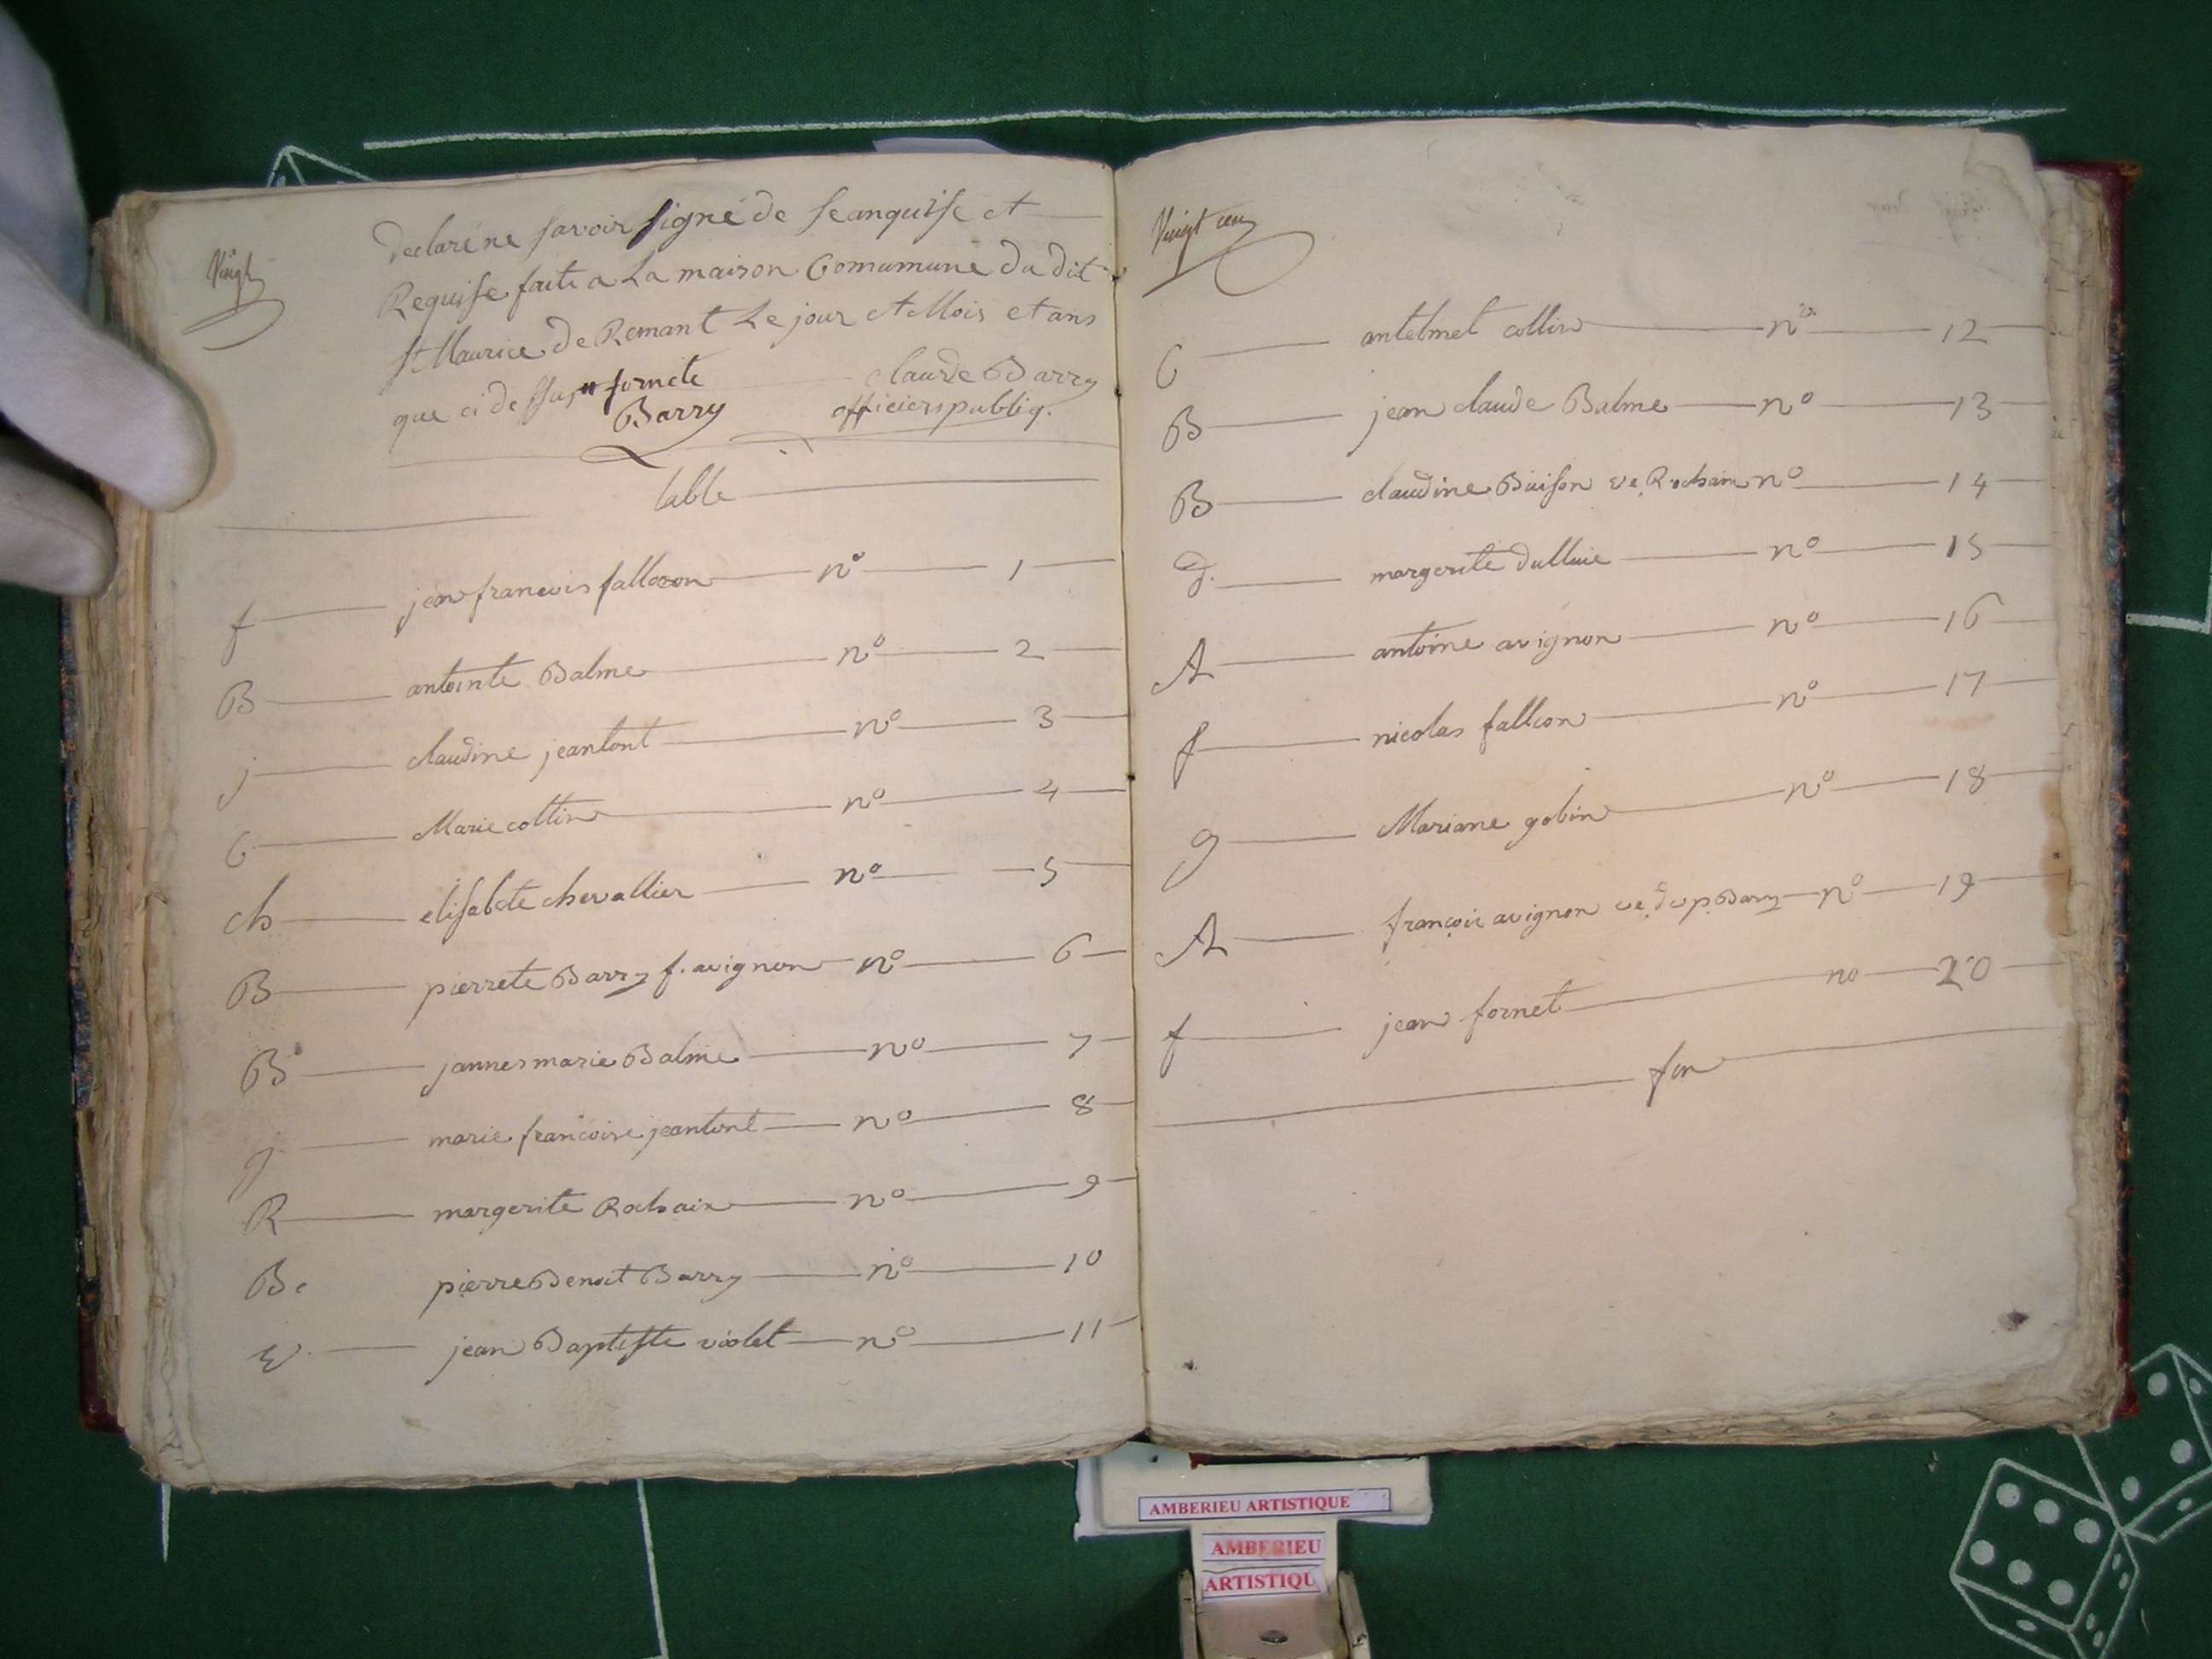 Vingt
declaré ne savoir signé de se anquise et
Requise faite a La maison Comumune du dit
st Maurice de Remant Le jour et Mois et ans
que ci dessus fornete claude Barry
Barry officiers publiq.
table
f jean francois fallcon n° 1
B antointe Balme n° 2
j claudine jeantont n° 3
C Marie collin n° 4
ch elisabete chevallier n° 5
B pierrete Barry f. avignon n° 6
B jannes marie Balme n° 7
j marie francoise jeantont n° 8
R margerite Rochaix n° 9
B pierre Benoit Barry n° 10
V jean Baptiste violet n° 11
Vingt un
C antelmet collin n° 12
B jean claude Balme n° 13
B claudine Buison ve. Rochaix n° 14
d. margerite dulluie n° 15
A antoine avignon n° 16
f nicolas fallcon n° 17
g Mariane gobin n° 18
A françois avignon ve. de p. Barry n° 19
f jean fornet no 20
fin
AMBERIEU ARTISTIQUE
AMBERIEU
ARTISTIQU